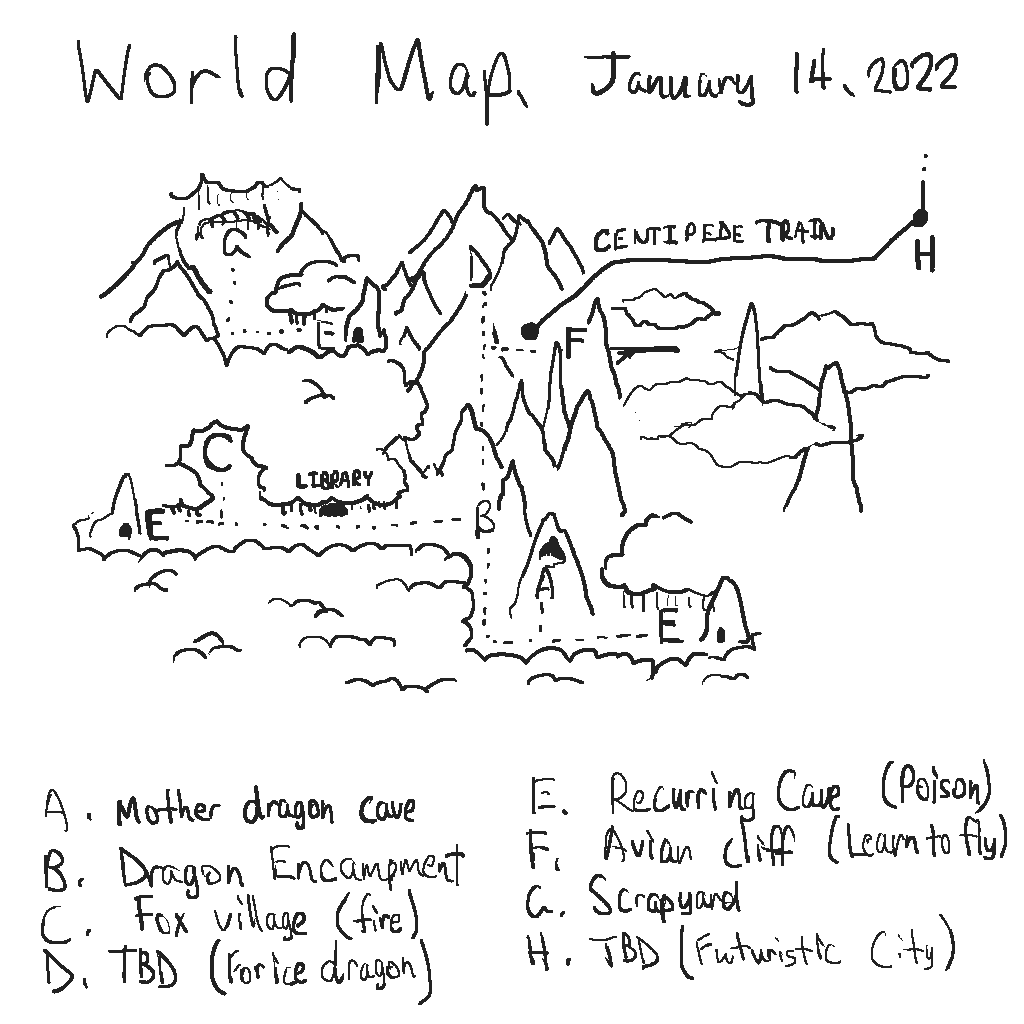 World Map, January 14, 2022
G
CENTIPEDE TRAIN
H
D
E
F
C
LIBRARY
E
B
A
E
A. Mother dragon cave
B. Dragon Encampment
C. Fox village (fire)
D. TBD (For ice dragon)
E. Recurring Cave (Poison)
F. Avian cliff (Learn to fly)
G. Scrapyard
H. TBD (Futuristic City)